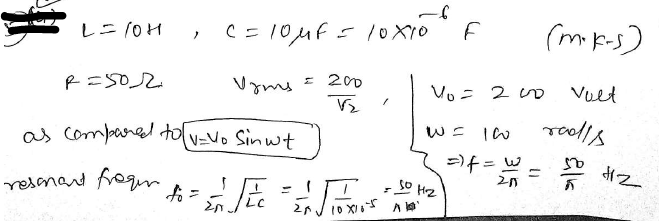 L = 10H , C = 10μF = 10×10⁻⁶ F (m.k-s)
R = 50Ω Vrms = 200/√2 , V₀ = 200 Volt
as compared to V=V₀ Sinwt W = 100 rad/s
=) f = w/2π = 50/π Hz
resonant frequn f₀ = 1/2π √1/LC = 1/2π √1/10×10⁻⁵ = 50/π Hz